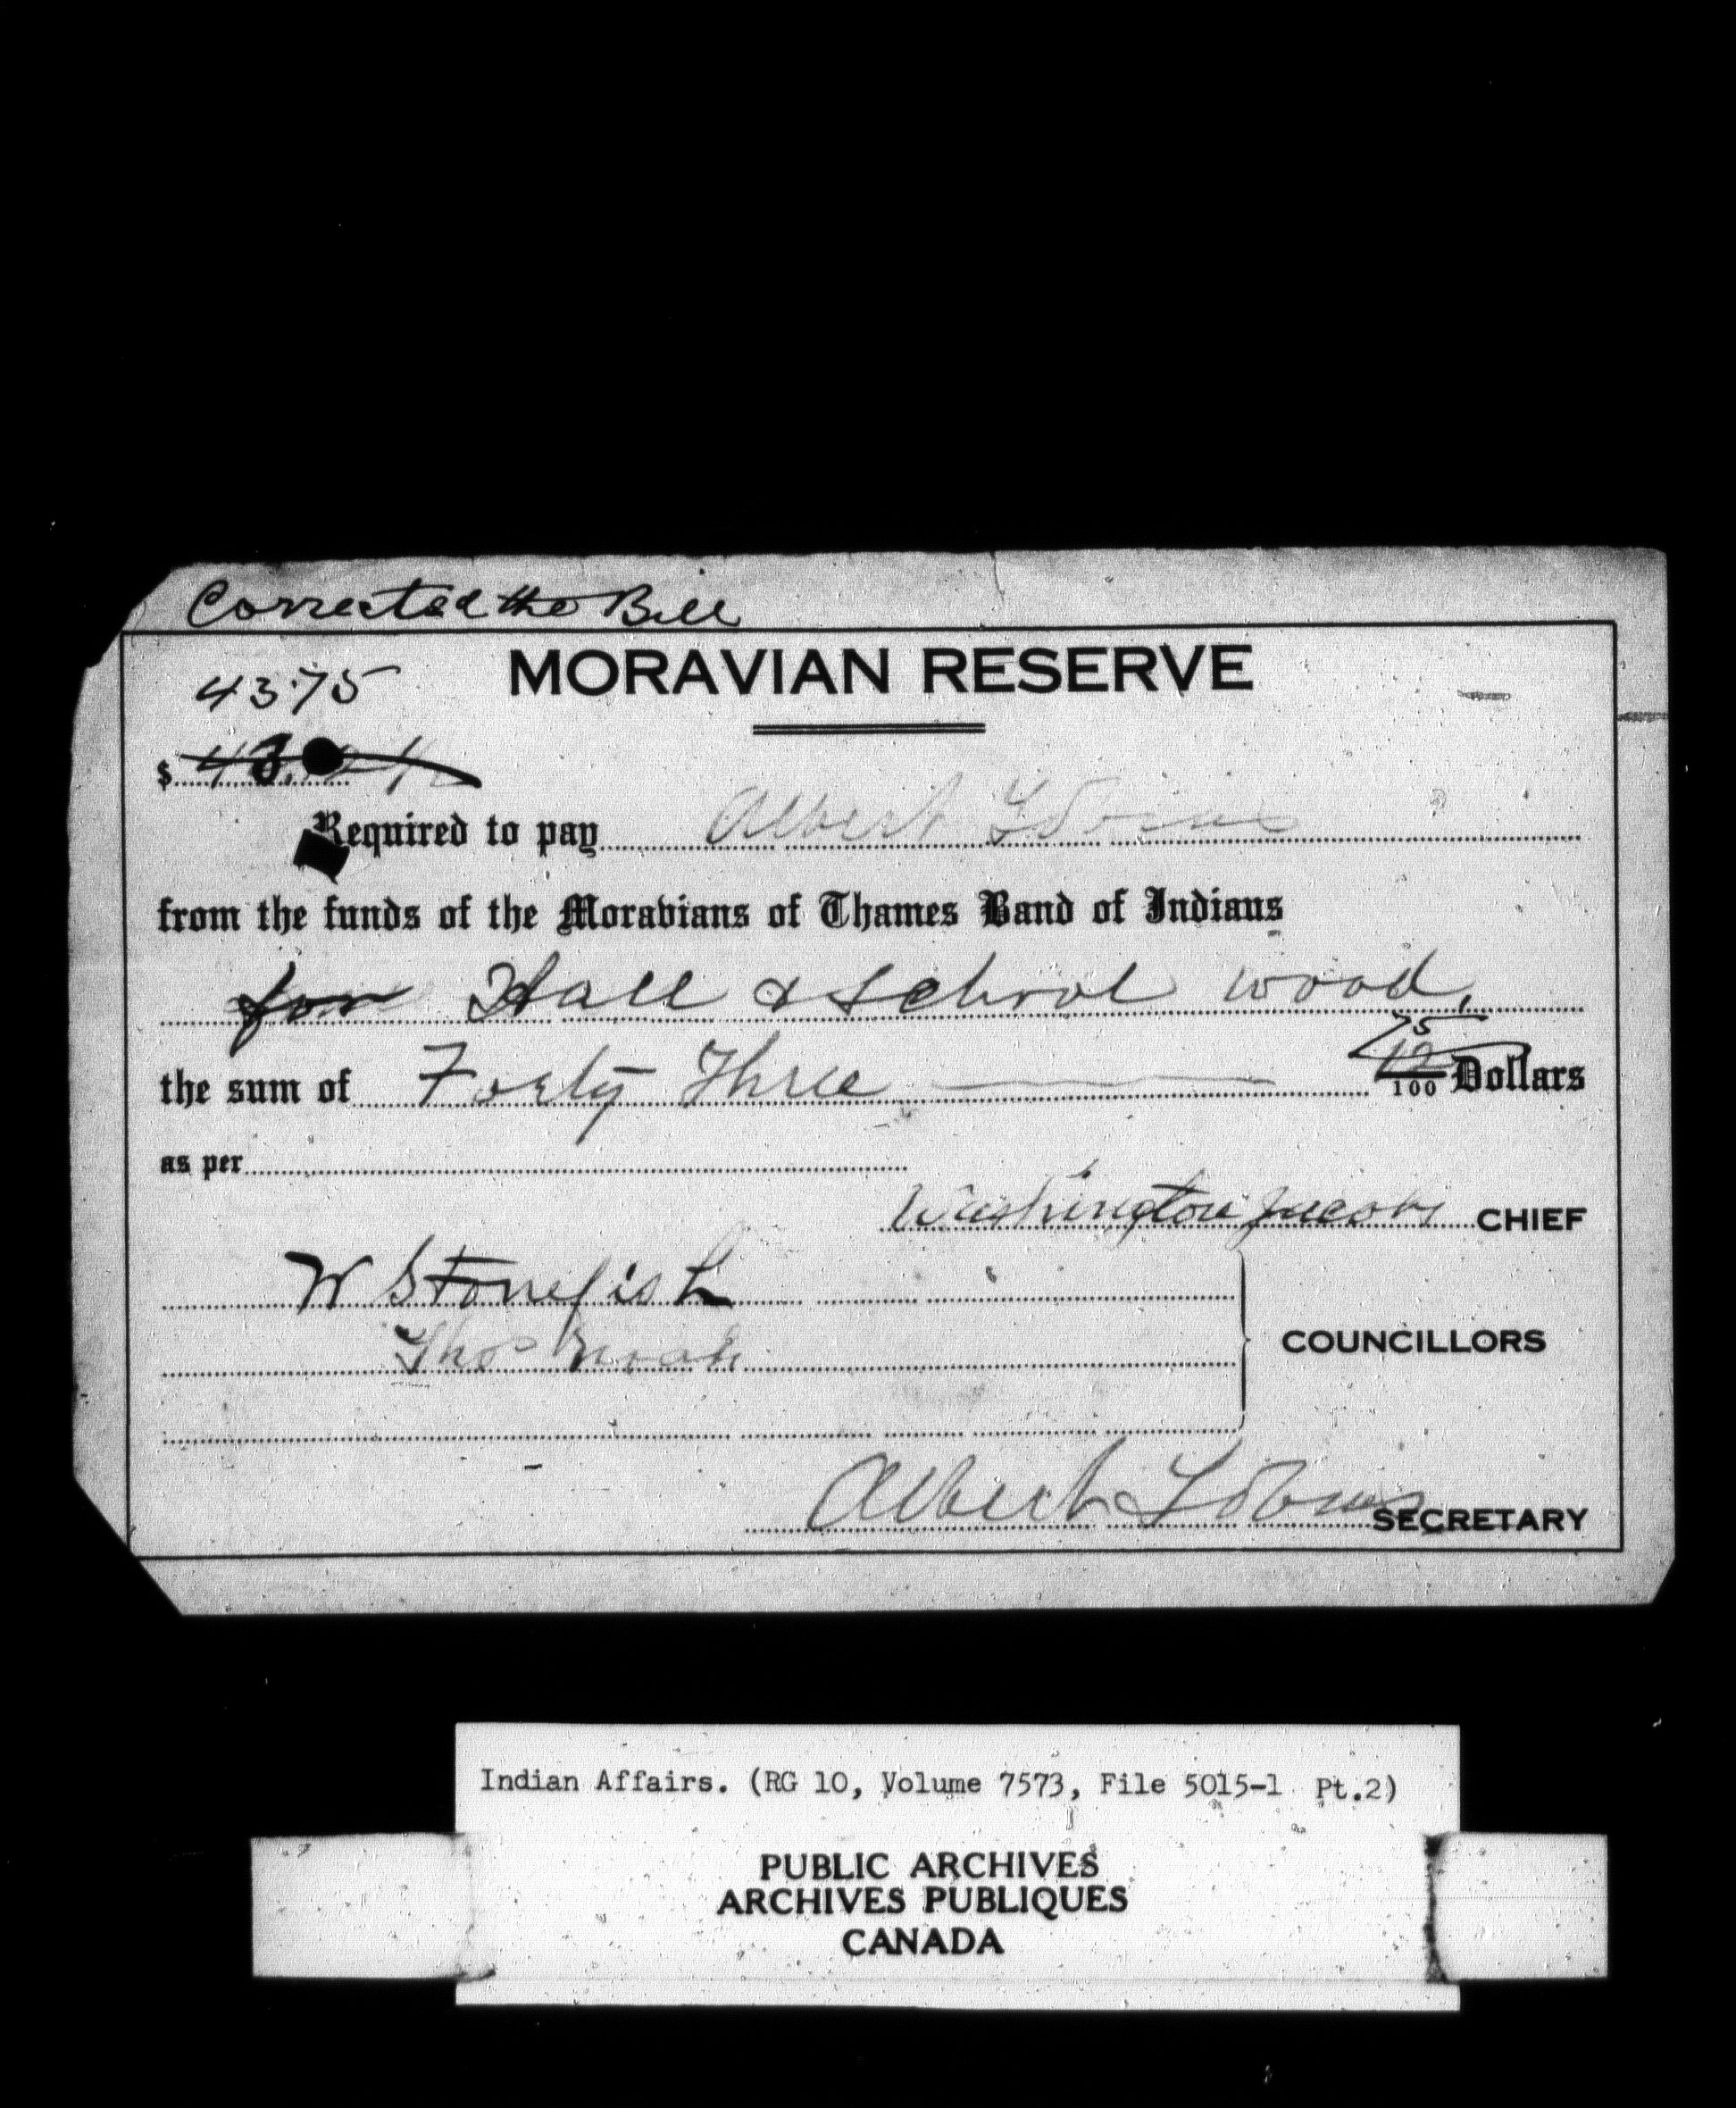 Corrected the Bill
MORAVIAN RESERVE
43.75
$ 43.
Required to pay Albert Tobias
from the funds of the Moravians of Thames Band of Indians
for Hall & school wood,
the sum of Forty Three 75/100 Dollars
as per
Washington Jacobs CHIEF
W Stonefish
Thos Noah
COUNCILLORS
Albert Tobias SECRETARY
Indian Affairs. (RG 10, Volume 7573, File 5015-1 Pt.2)
PUBLIC ARCHIVES
ARCHIVES PUBLIQUES
CANADA